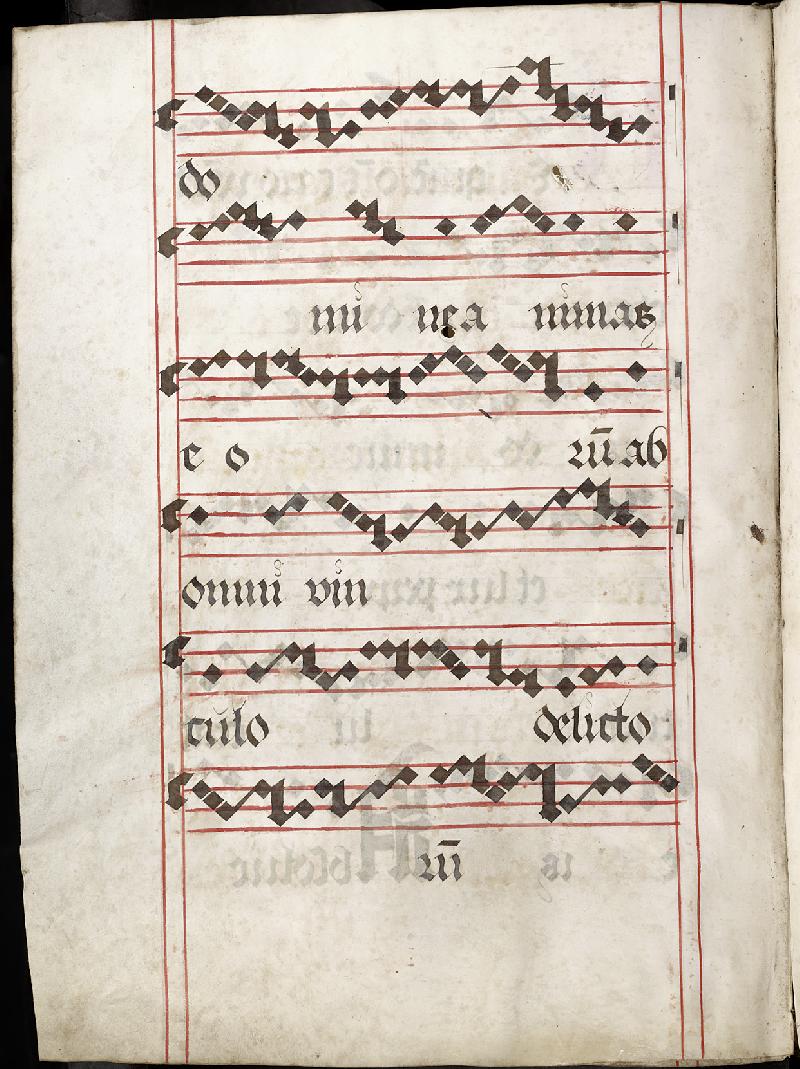 do
mi nea nimas
e o rū ab
omni vin
culo delicto
rū